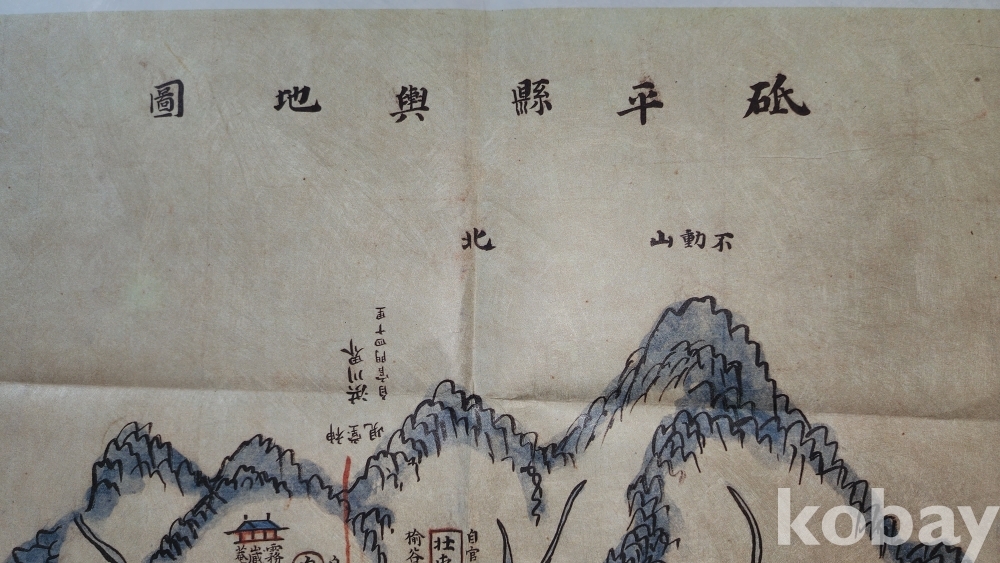 砥平縣輿地圖
不動山
北
洪川界
自官門四十里
神堂峴
自官
楡谷
霧
kobay